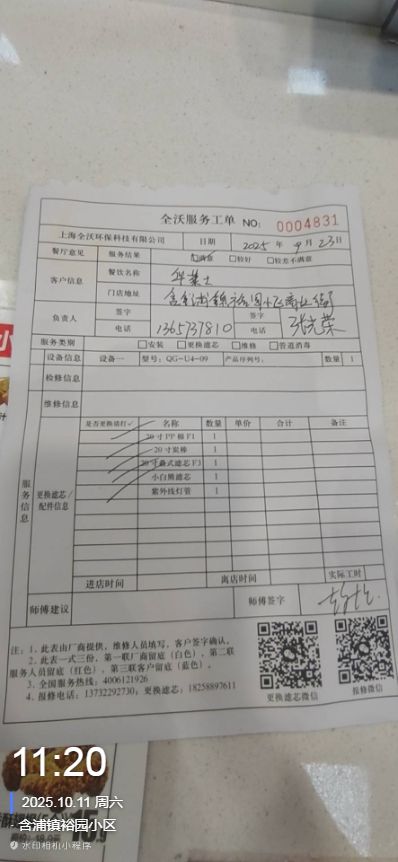 全沃服务工单 NO: 0004831
上海全沃环保科技有限公司 日期 2025年9月23日
餐厅意见 服务结果 □满意 □较好 □较差不满意
客户信息 餐饮名称 华莱士
门店地址
负责人 签字 签字
电话 1365737810 电话
服务类别 □安装 □更换滤芯 □维修 □管道消毒
设备信息 设备一 型号：QG-U4-09 产品序列号： 数量 1
检修信息
维修信息
服务信息
更换滤芯/配件信息
是否更换请打✓ 名称 数量 单价 合计 备注
20寸PP棉F1 1
20寸炭棒 1
20寸叠式滤芯F3 1
小白熊滤芯 1
紫外线灯管 1
进店时间 离店时间 实际工时
师傅建议 师傅签字
注：1. 此表由厂商提供，维修人员填写，客户签字确认。
2. 此表一式三份，第一联厂商留底（白色），第二联
服务人员留底（红色），第三联客户留底（蓝色）。
3. 全国服务热线：4006121926
4. 报修电话：13732292730；更换滤芯：18258897611
更换滤芯微信 报修微信
11:20
2025.10.11 周六
含浦镇裕园小区
水印相机小程序